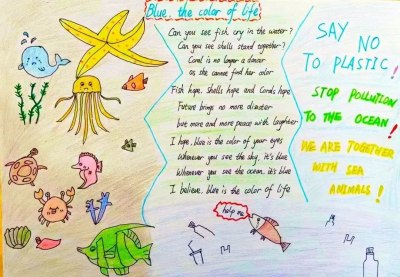 Blue, the color of life
Can you see fish cry in the water?
Can you see shells stand together?
Coral is no longer a dancer
as she cannot find her color
Fish hope, Shells hope and Corals hope
Future brings no more disaster
but more and more peace with laughter
I hope, blue is the color of your eyes
Whenever you see the sky, it's blue
Whenever you see the ocean, it's blue
I believe, blue is the color of life
SAY NO
TO PLASTIC!
STOP POLLUTION
TO THE OCEAN!
WE ARE TOGETHER
WITH SEA
ANIMALS!
help me